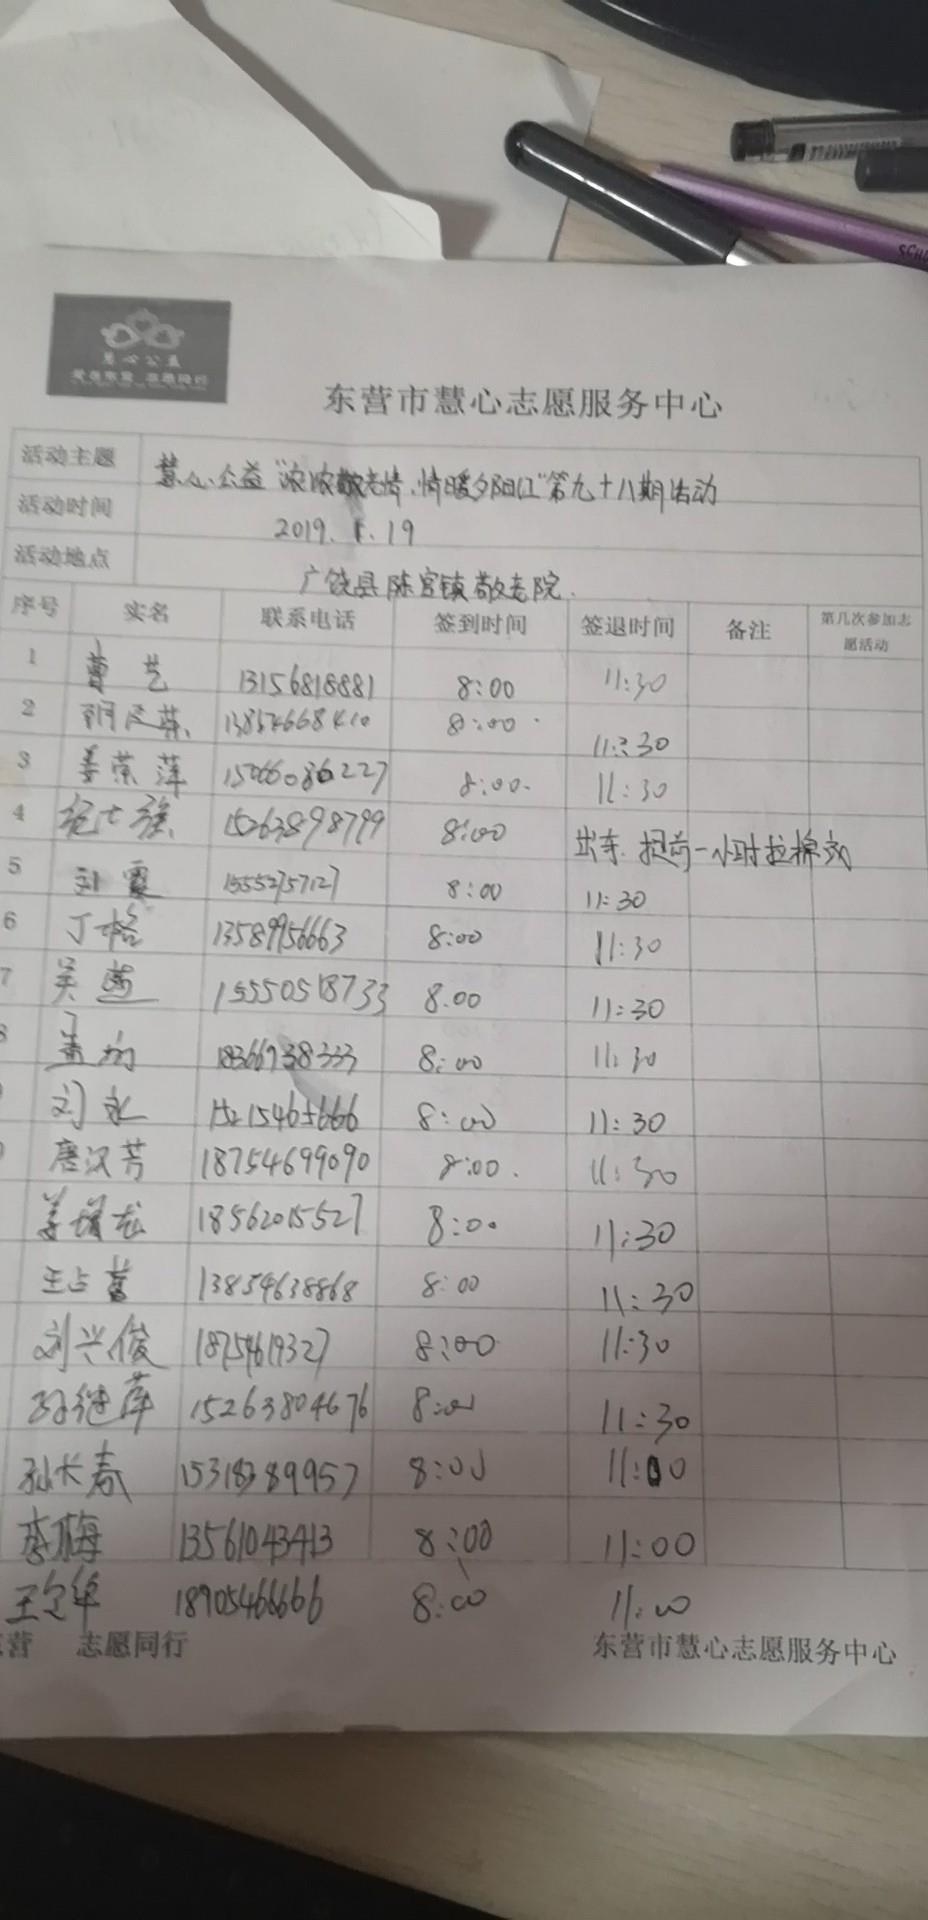 慧心公益
东营市慧心志愿服务中心
活动主题 慧心公益“浓浓敬老情、情暖夕阳红”第九十八期活动
活动时间 2019.1.19
活动地点 广饶县陈官镇敬老院.
序号 实名 联系电话 签到时间 签退时间 备注 第几次参加志愿活动
1 曹艺 13156818881 8:00 11:30
2 13854668410 8:00 11:30
3 姜荣萍 15066086227 8:00 11:30
4 纪士强 15263898799 8:00 出车.提前一小时拉棉衣
5 刘霞 15552757127 8:00 11:30
6 丁格 13589956663 8:00 11:30
7 吴燕 15550518733 8:00 11:30
8 18366938333 8:00 11:30
刘永 15215465666 8:00 11:30
唐汉芳 18754699090 8:00 11:30
姜增龙 18562015527 8:00 11:30
王占营 13854638868 8:00 11:30
刘兴俊 8:00 11:30
孙继萍 15263804676 8:00 11:30
孙长春 15318389957 8:00 11:00
李梅 13561043413 8:00 11:00
王定华 18905466666 8:00 11:00
营 志愿同行 东营市慧心志愿服务中心